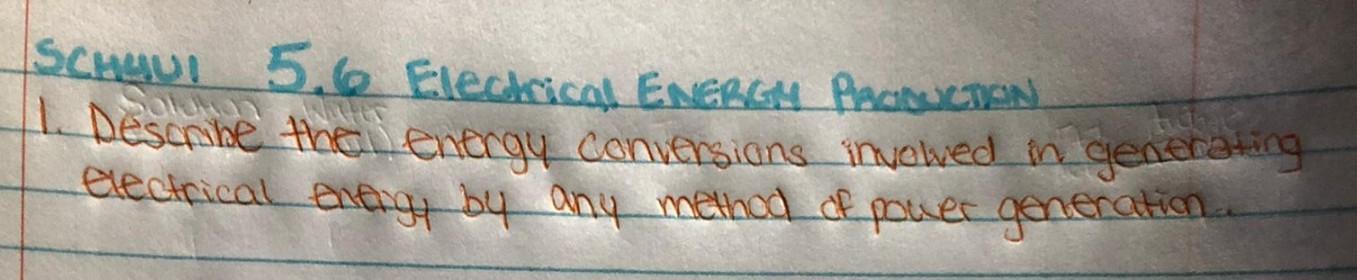 SCH4U1 5.6 Electrical ENERGY PRODUCTION
1. Describe the energy conversions involved in generating
electrical energy by any method of power generation.